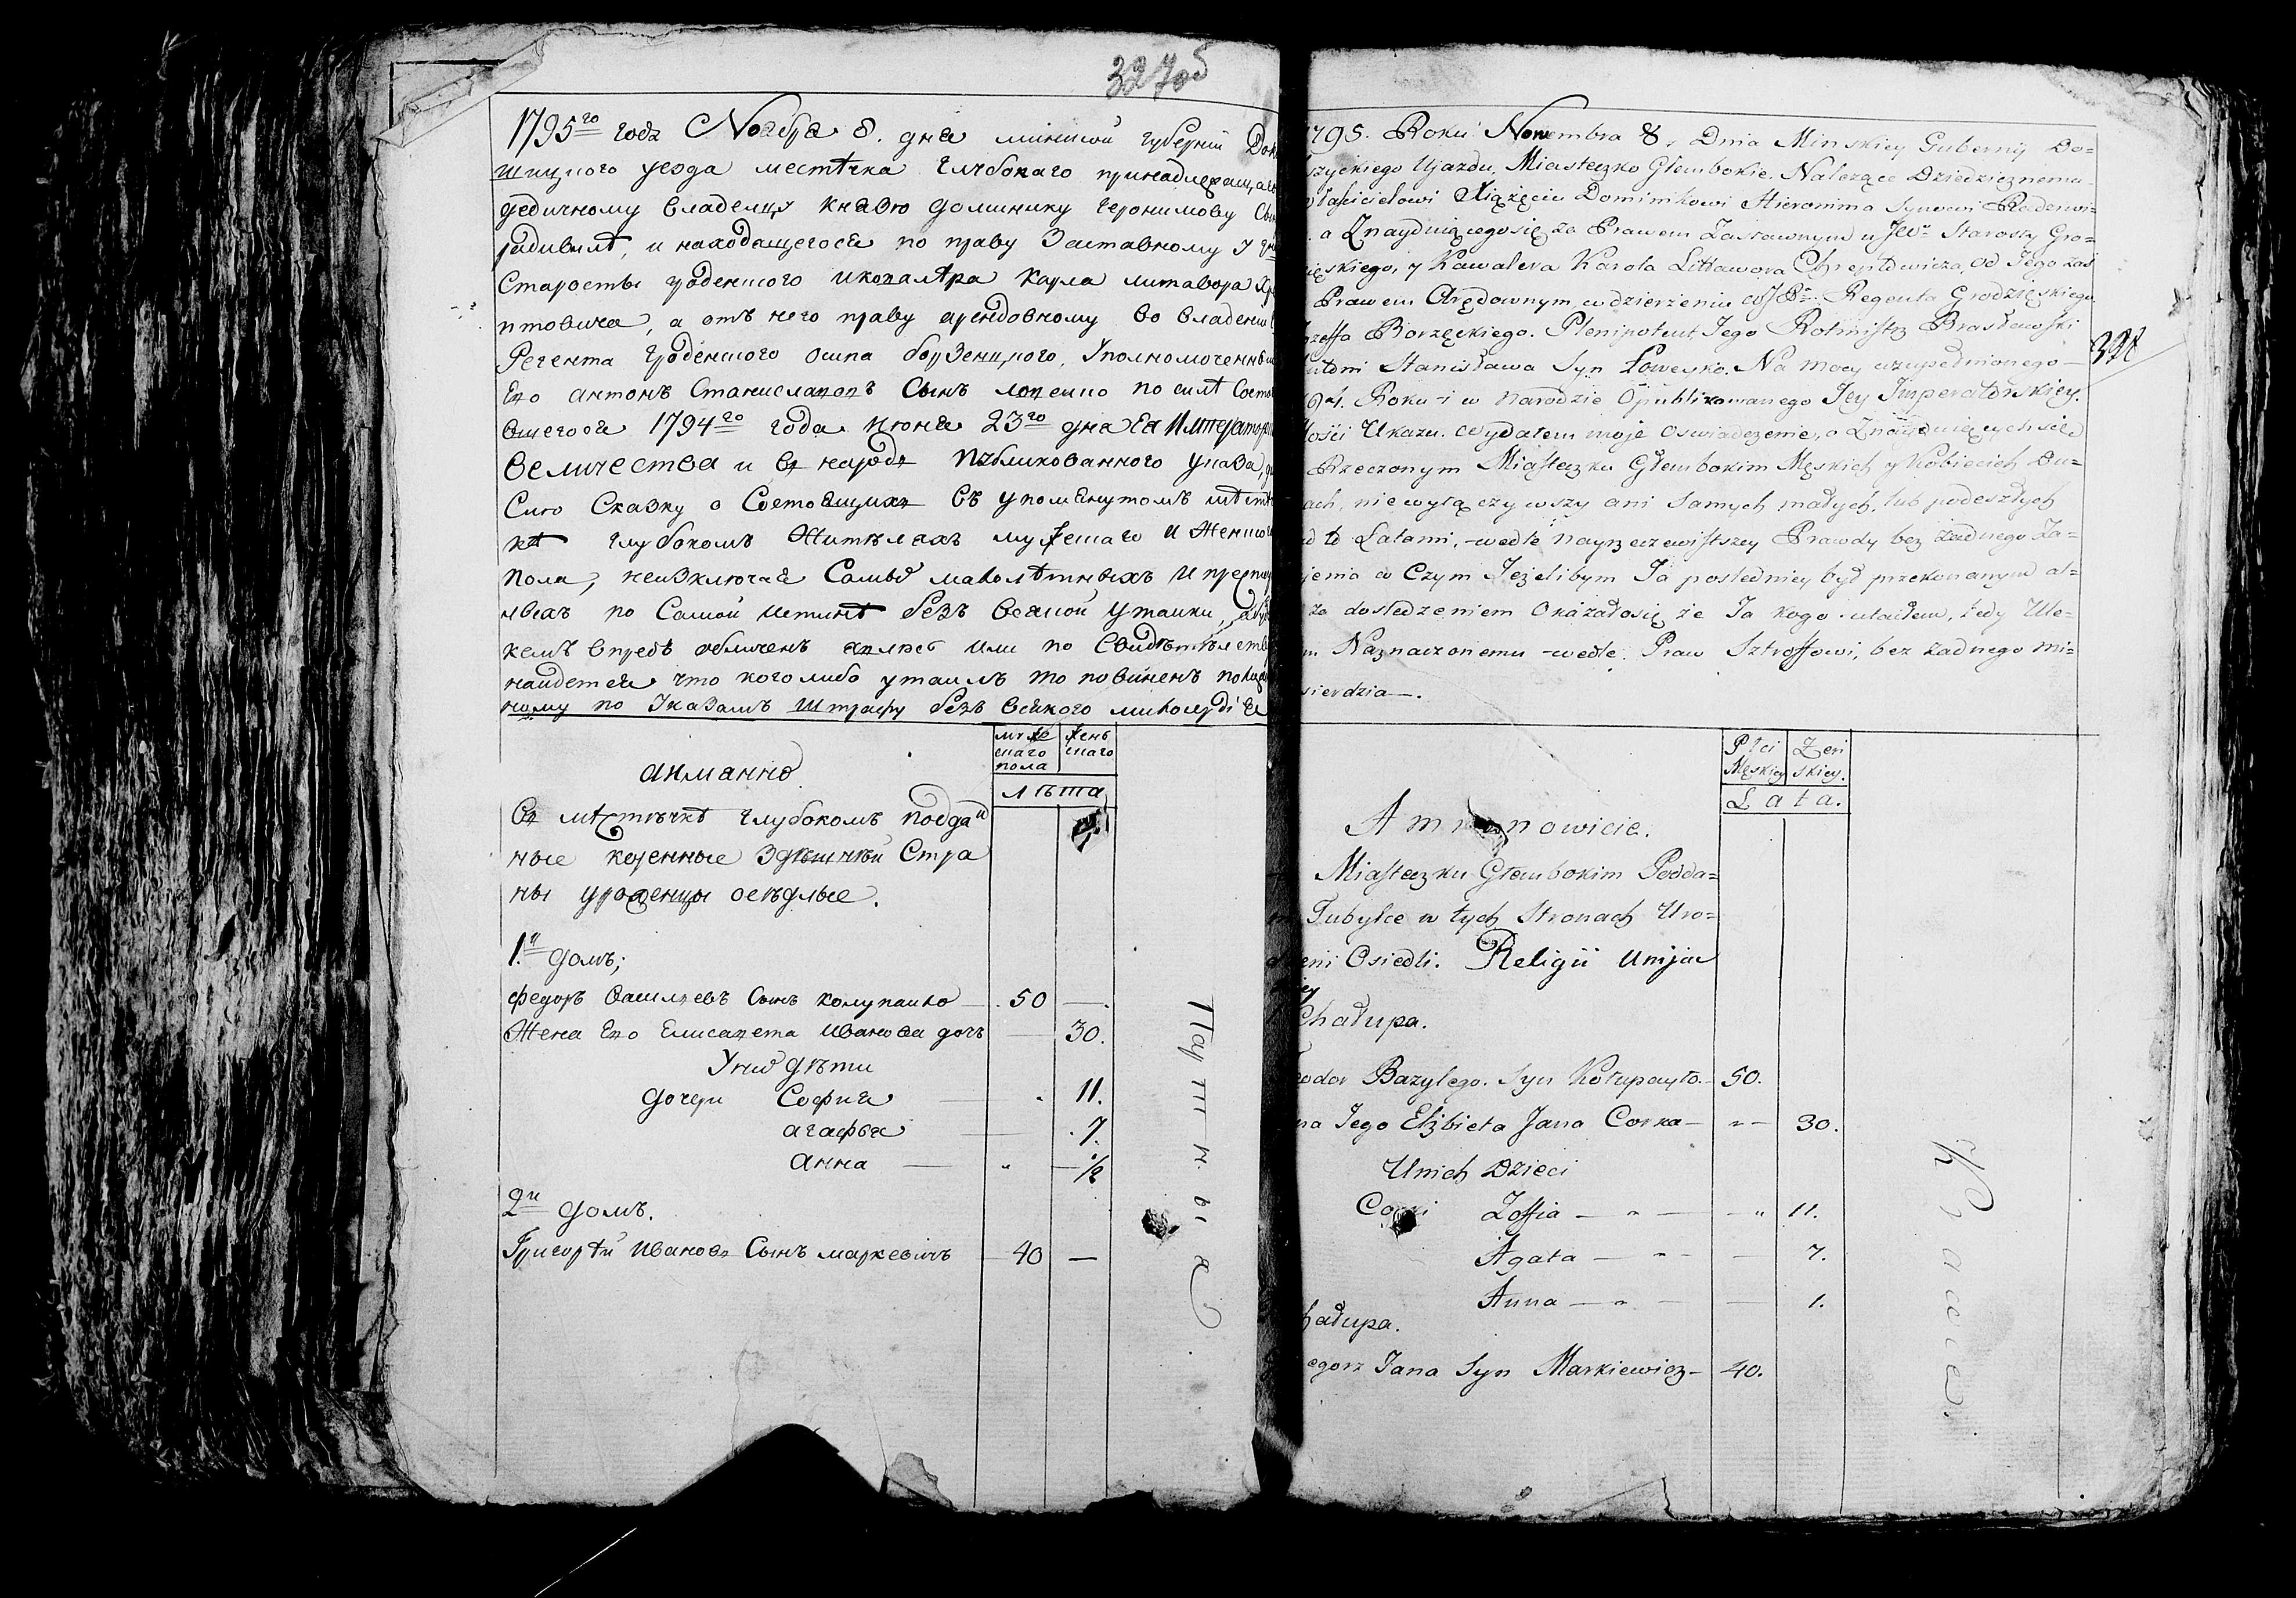 327об
1795го года Ноября 8. дня минской губернии Док
шицкого уезда местечка глубокаго принадлежащаго
дедичному владелцу князю доминику герониmову сы
радивилѣ, и находящегося по праву заставному у
старосты гроденского и кавалѣра карла литавора Хр
птовича, а отъ него праву арендовному во владении
Регента гроденского осипа борзенцкого. Уполномоченный
Его антонъ Станиславовъ сынъ ловейко по силѣ состо
вшегося 1794го года июня 23го дня Ея Император
величества и въ народъ публикованного указа,
Сию Сказку о состоящихъ въ упомянутомъ мѣсте
кѣ глубокомъ жителяхъ мужескаго и женског
пола, неизключая самыхъ малолѣтныхъ и престар
лыхъ по самой истинѣ безъ всякой утайки,
кемъ впредь обличенъ явлюсь или по свидѣтелств
найдется что кого либо утаилъ то повиненъ полож
ному по Указамъ Штрафу безъ всякого милосердія
муже
скаго
пола
жень
скаго
лѣта
акманно
Въ мѣстечкѣ глубокомъ поддан
ные коренные здѣшнѣй Стра
ны уроженцы осѣдлые.
1.й домъ;
федоръ васильевъ сынъ колупайло — 50 —
Жена Его Елисавета иванова дочь — 30.
У них дѣти
дочери София — 11.
агафья — 7.
анна — 1/2
2й домъ.
Григорѣй ивановъ сынъ маркевичъ — 40 —
1795. Roku Nowembra 8. Dnia Minskiey Gubernij Do=
szyckiego Ujazdu, Miasteczko Głembokie. Nalezące Dziedzicznemu
właścicielowi Xiążęciu Dominikowi Hieronima Synowi Radziwi=
a Znayduiącego się za Prawem Zastawnym u JWo Starosty Gro=
skiego, y Kawalera Karola Littawora Chreptowicza, od Jego zaś
Prawem Arędownym w dzierzeniu Regenta Grodzięskiego
zeffa Borzęckiego. Plenipotent Jego Rotmistrz Brasławski
Antoni Stanisława Syn Łoweyko. Na mocy uzupełnionego
Roku i w narodzie Opublikowanego Jey Imperatorskiey.
łości Ukazu. wydałem moje oswiadczenie, o Znayduiących sie
Rzeczonym Miasteczku Głembokim Męskich y Kobiecich Du=
ach, nie wyłączywszy ani samych małych, lub podeszłych
Latami, wedle nayrzeczewistszey Prawdy bez żadnego Za=
jenia w Czym Jeżelibym Ja posledniey był przekonanym al=
za dosledzeniem Okazałosię że Ja kogo utaiłem, tedy Ule=
Naznaczonemu wedle Praw Sztroffowi, bez żadnego mi=
sierdzia.
328
Płci
Męskiey
Żeń
skiey.
Lata.
Miasteczku Głembokim Podda=
Tubylce w tych Stronach Uro=
eni Osiedli. Religii Unijac
Chałupa.
eodor Bazylego Syn Kołupayło. 50.
na Jego Elżbieta Jana Corka — 30.
U nich Dzieci
Corki Zoffia — 11.
Agata — 7.
Anna — 1.
hałupa.
egorz Jana Syn Markiewicz — 40.